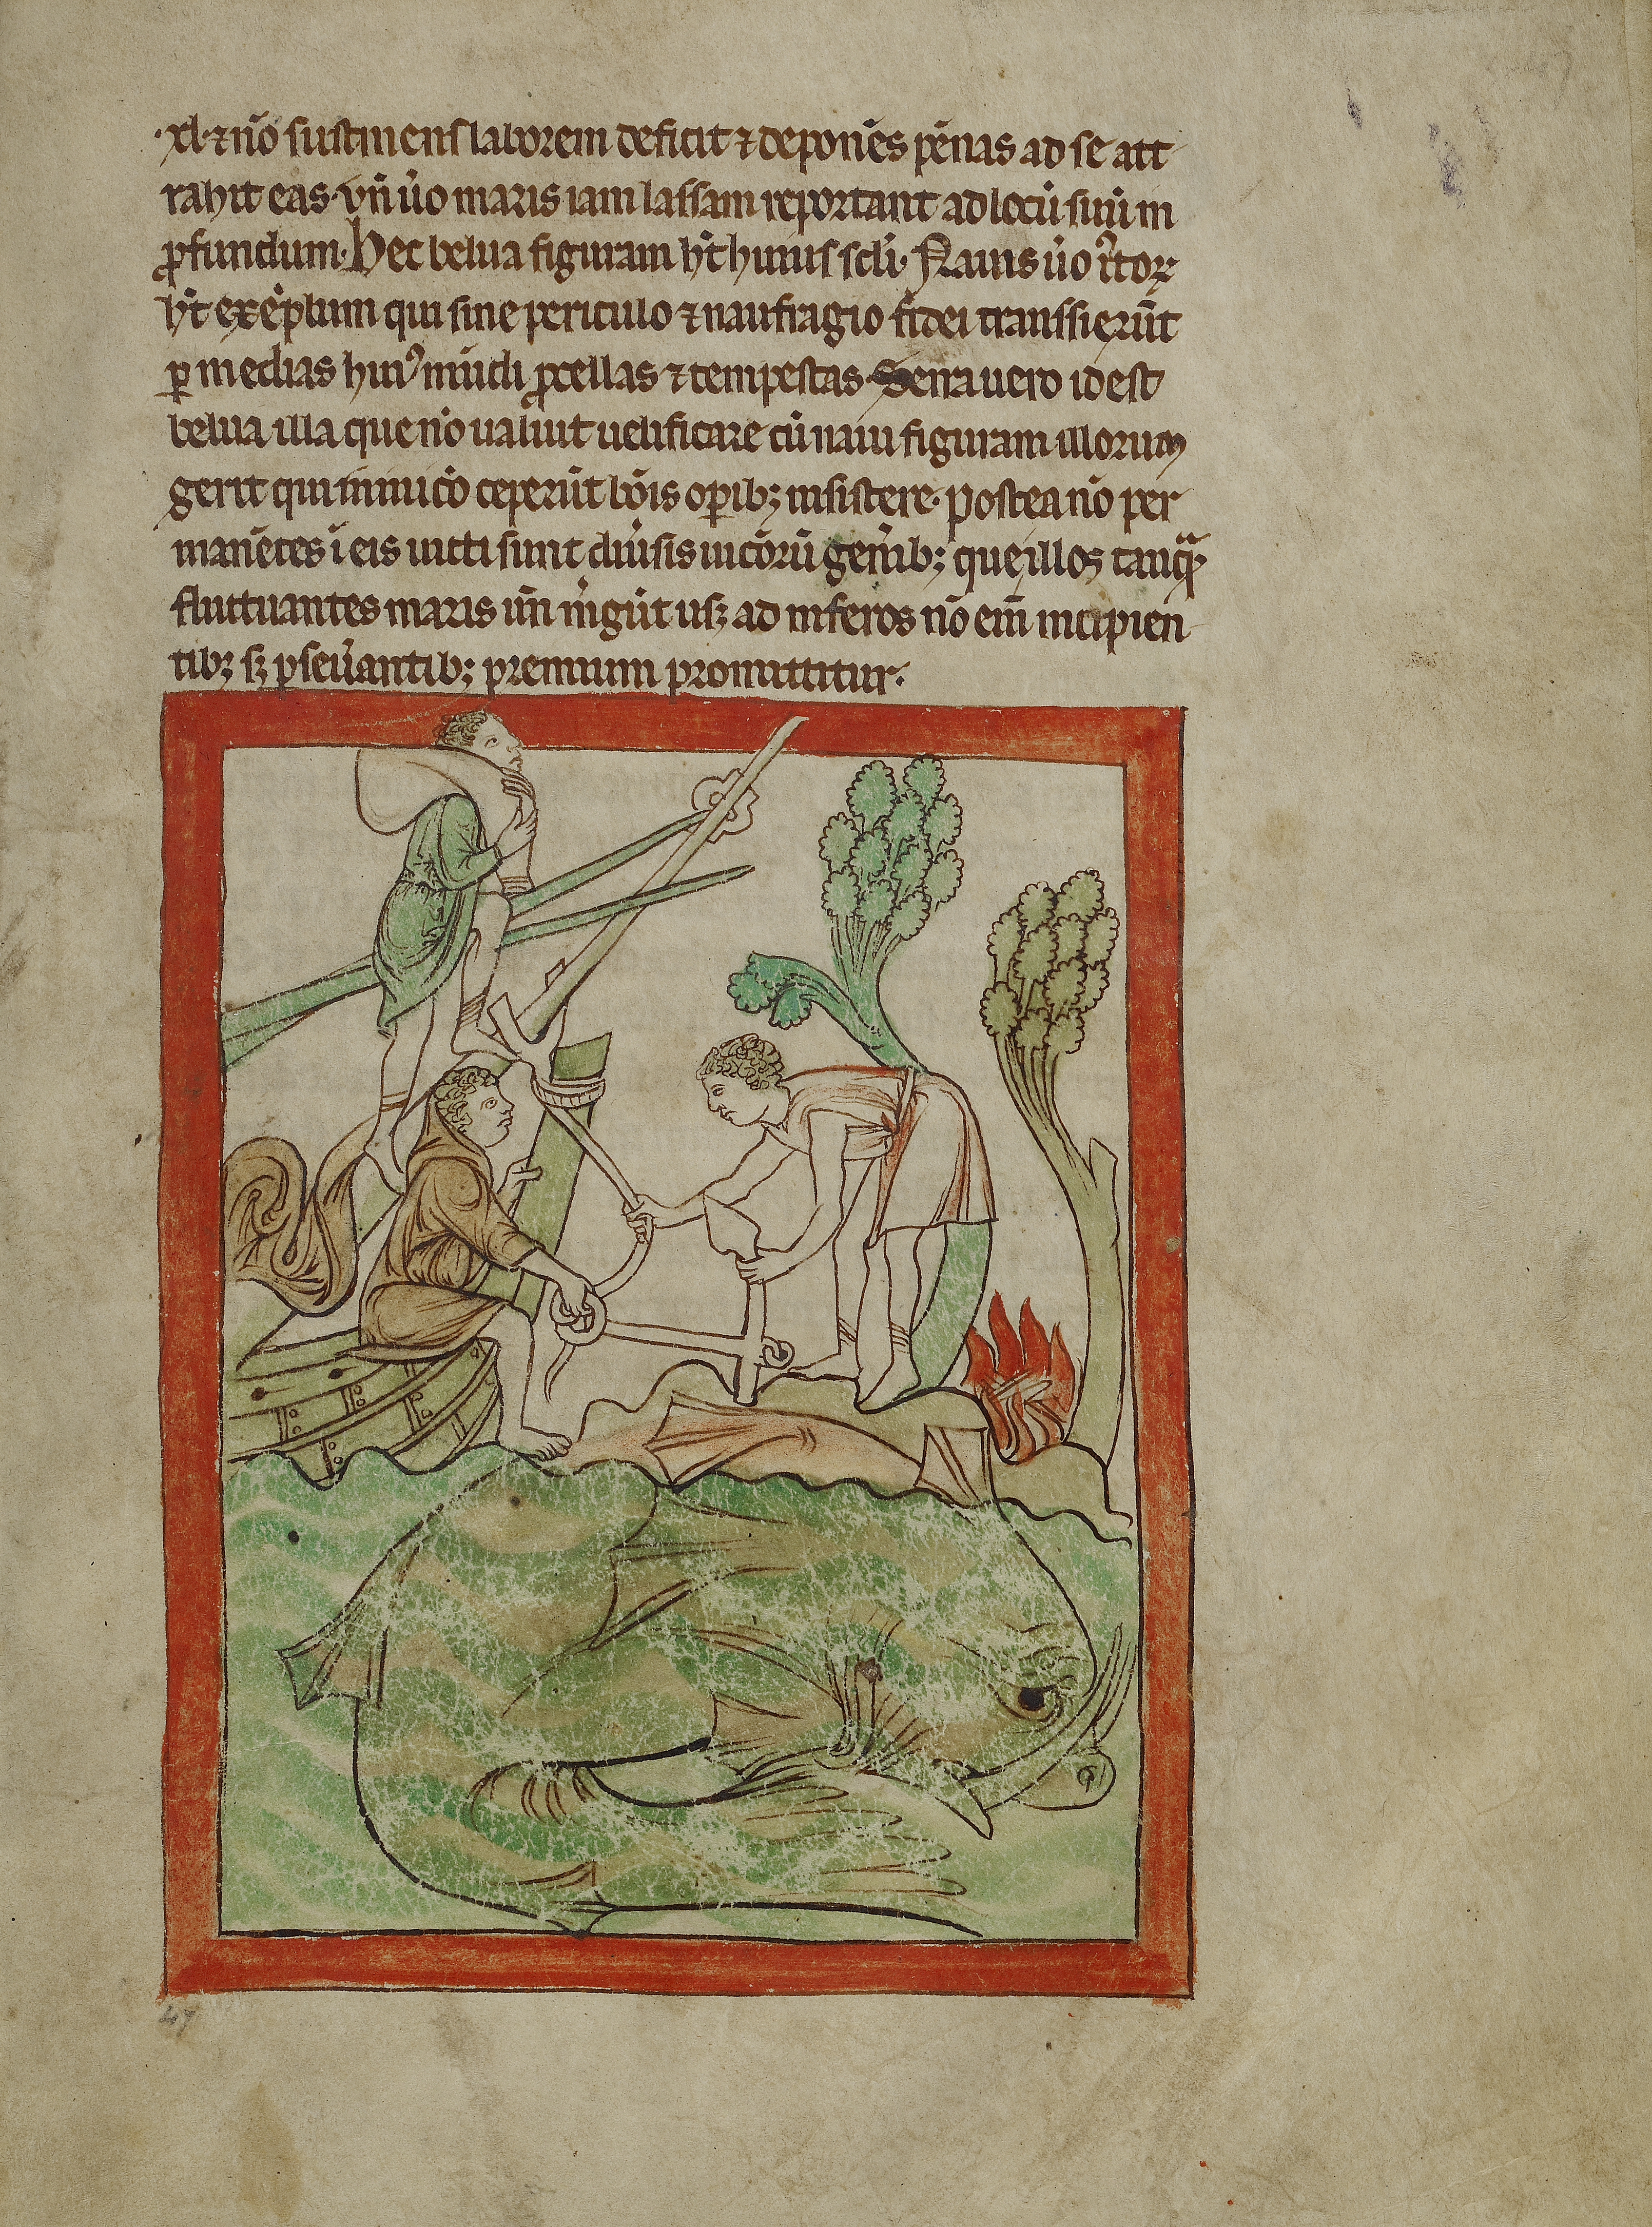 ·xl· ⁊ nō sustinens laborem deficit ⁊ deponēs pēnas ad se att
rahit eas· Vn̄ ůo maris iam lassam reportant ad locū suū in
ꝓfundum· Hec belua figuram hꝫt huius scl̄i· Nauis ůo
hꝫt exēplum qui sine periculo ⁊ naufragio fidei transsierūt
ꝑ medias huiꝰ mūdi ꝓcellas ⁊ tempestas· Serra uero id est
belua illa que nō ualuit uelificare cū naui figuram illorum
gerit qui in inicō ceperūt bōis oꝑibꝫ insistere· postea nō per
manētes ī eis uicti sunt diůsis uicōrū gen̄ibꝫ que illos tanqᷓ
fluctuantes maris un̄ mͥgūt usqꝫ ad inferos nō em̄ incipien
tibꝫ sꝫ ꝑseůantibꝫ premium promittitur·
47